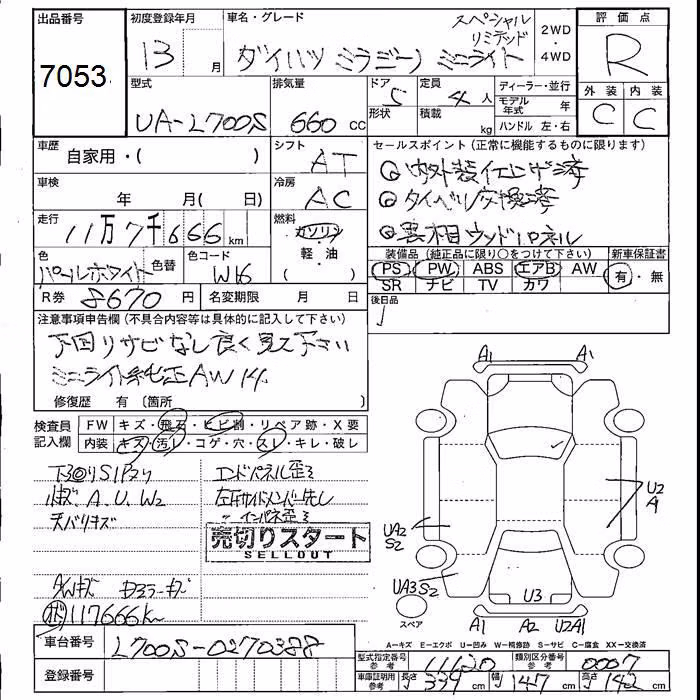 出品番号
7053
初度登録年月
13 月
車名・グレード
スペシャル
リミテッド
ダイハツ ミラジーノ ミニライト
2WD
・
4WD
評価点
R
外装 内装
C C
型式
UA-L700S
排気量
660 cc
ドア
5
形状
定員
4 人
積載
kg
ディーラー・並行
モデル年式 年
ハンドル 左・右
車歴
自家用・( )
シフト
AT
車検
年 月( 日)
冷房
AC
走行
11万7千666 km
燃料
ガソリン
軽・油
( )
色
パールホワイト
色替
色コード
W16
R券 8670 円
名変期限 月 日
セールスポイント(正常に機能するものに限ります)
内外装仕上げ済
タイベル交換済
異相ウッドパネル
装備品(純正品に限り○をつけて下さい)
PS PW ABS エアB AW
SR ナビ TV カワ
新車保証書
有・無
後日品
注意事項申告欄(不具合内容等は具体的に記入して下さい)
下回りサビなし良く見て下さい
ミニライト純正AW14
修復歴 有〔箇所 〕
検査員
記入欄
FW キズ・飛石・ヒビ割・リペア跡・X要
内装 キズ・汚レ・コゲ・穴・スレ・キレ・破レ
小キズ、A、U、W2
天バリキズ
エンドパネル歪ミ
インパネ歪ミ
売切りスタート
SELLOUT
AWキズ
117666km
A1
A1
U2
A
UA2
S2
UA3 S2
U3
スペア
A1 A2 U2A1
A−キズ E−エクボ U−凹み W−補修跡 S−サビ C−腐食 XX−交換済
車台番号
L700S-0270388
登録番号
型式指定番号
参考
11120
類別区分番号
参考
0007
車庫証明用
参考
長さ 339 cm
幅 147 cm
高さ 142 cm